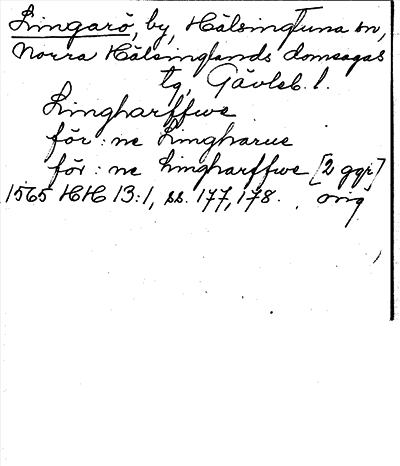 Lingarö, by, Hälsingtuna sn,
Norra Hälsinglands domsagas
tg, Gävleb. l.
Lingharffwe
för: ne Lingharue
för: ne Lingharffwe [2 ggr]
1565 HH 13:1, ss. 177, 178. orig